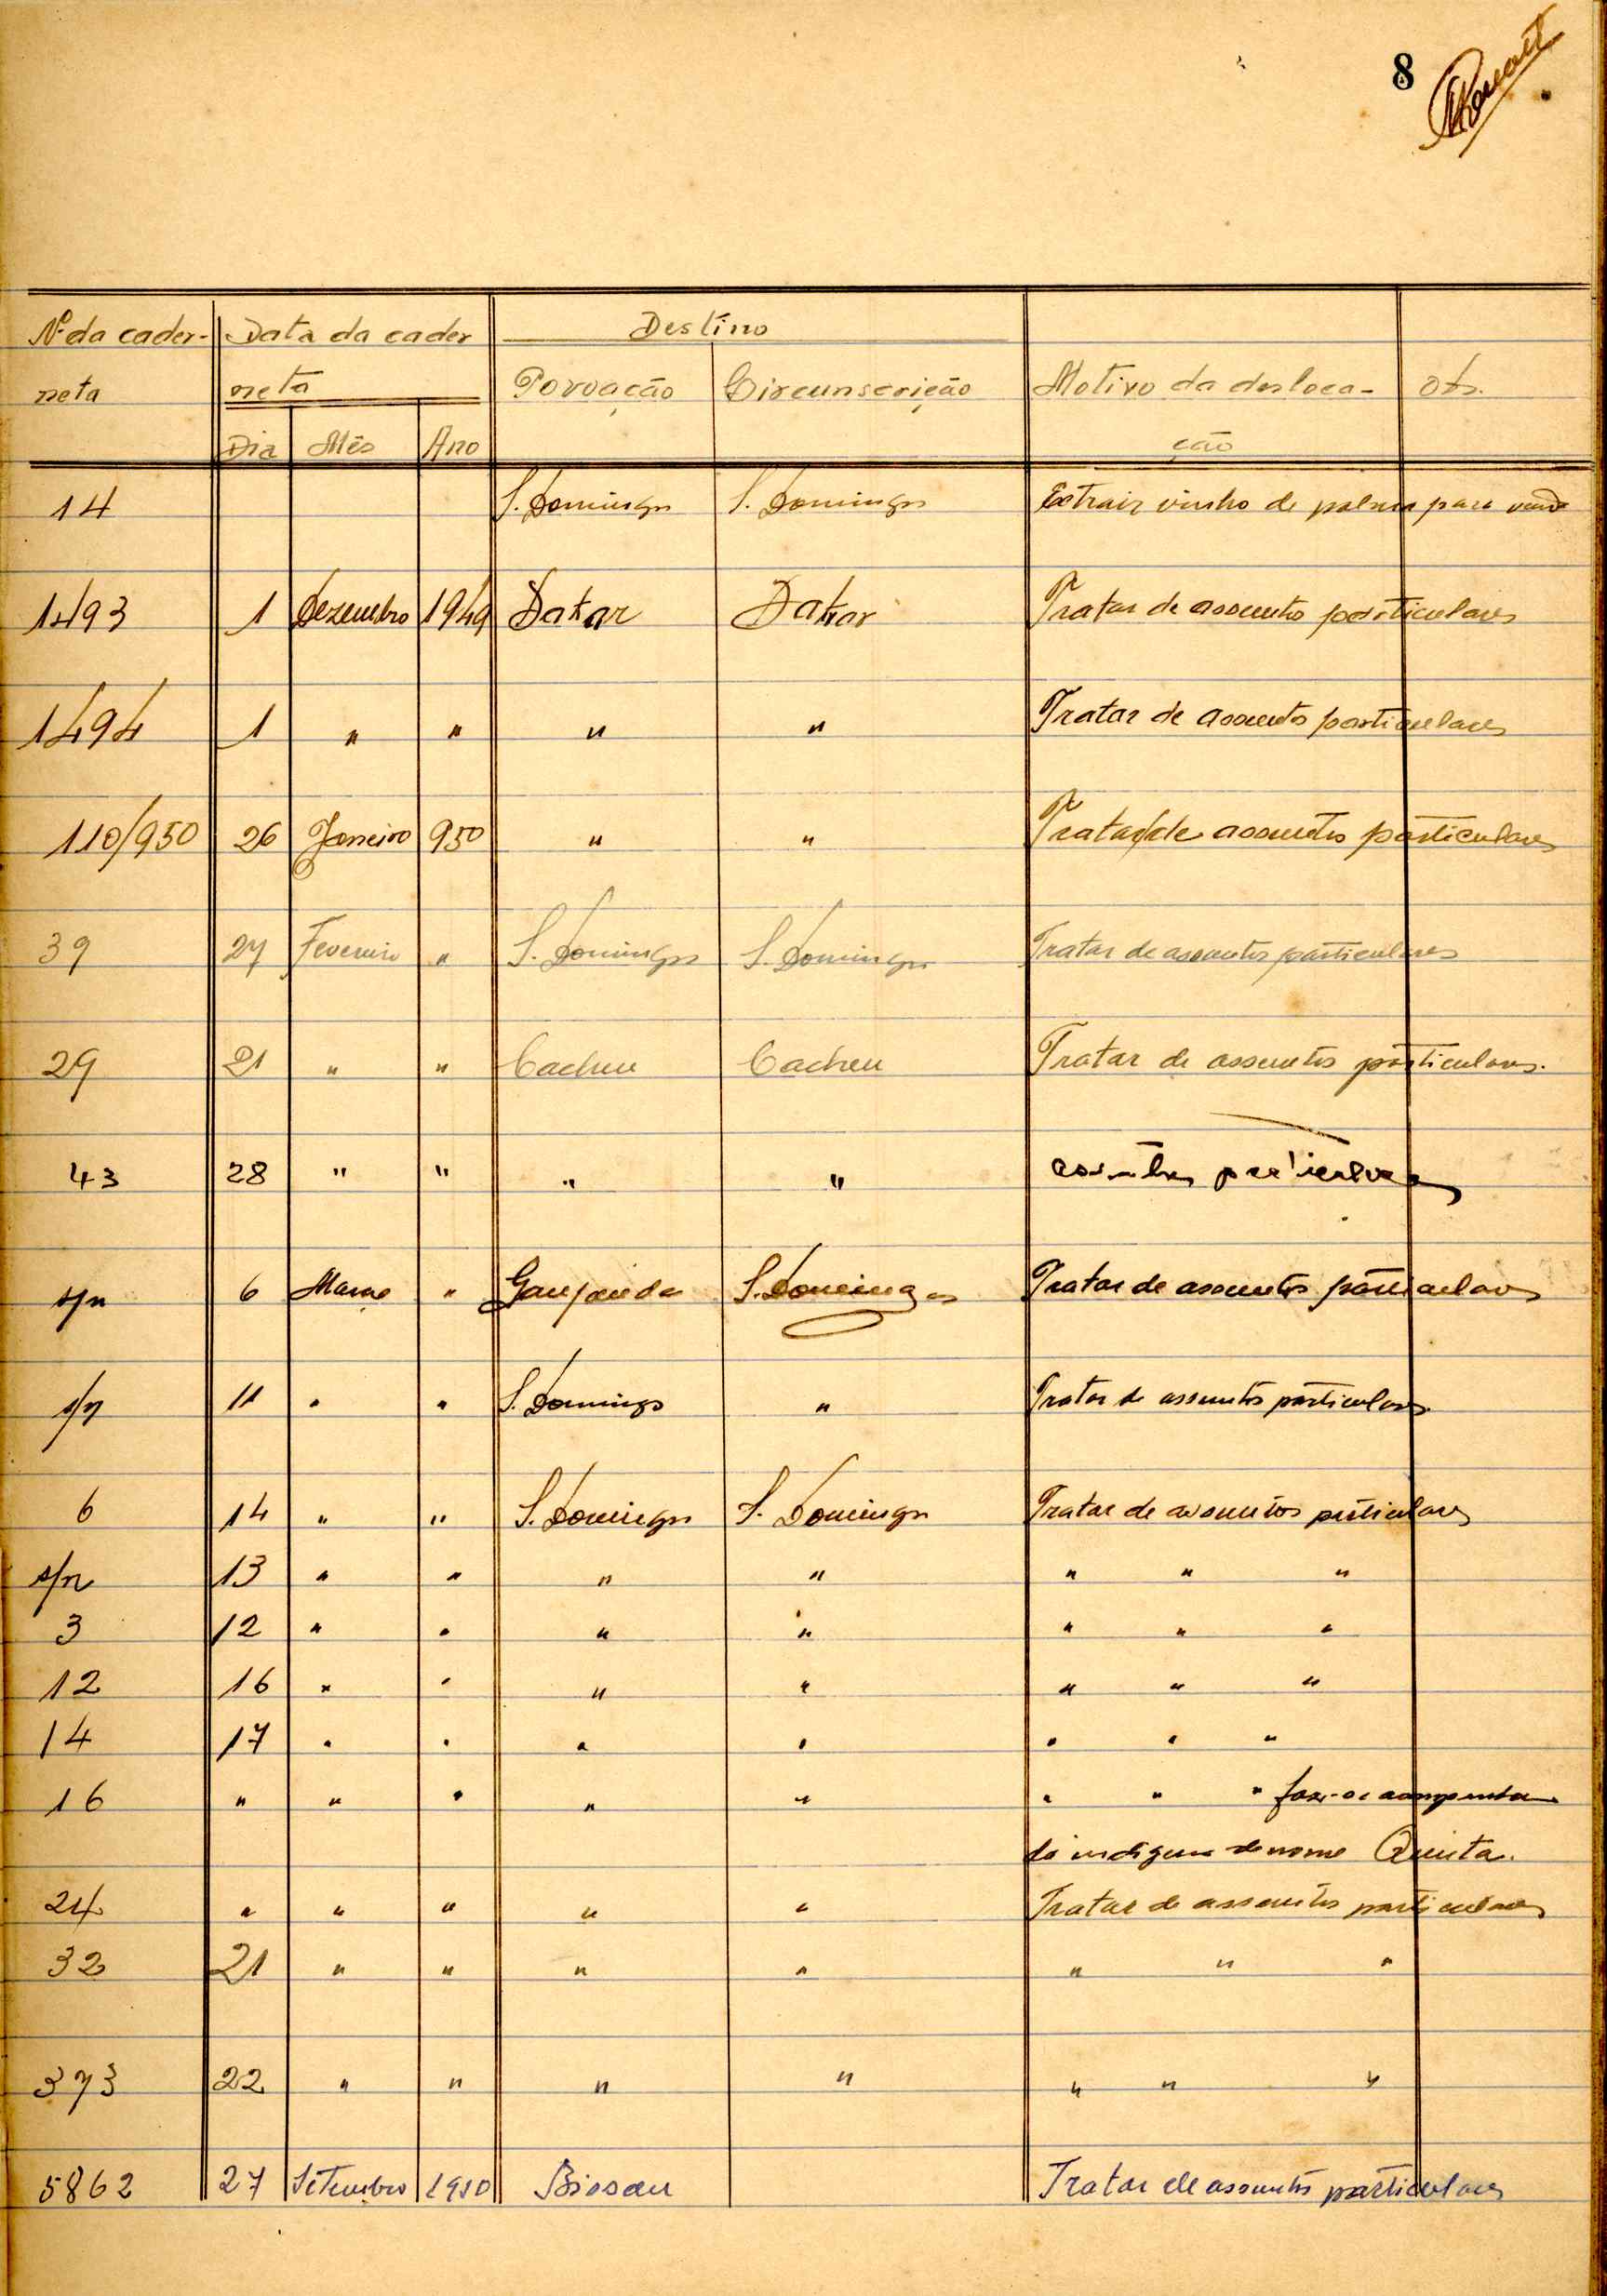 8
Nº da cader- Data da cader Destino
neta neta Povoação Circunscrição Motivo da desloca- Obs.
Dia Mês Ano ção
14 S. Domingos S. Domingos Extrair vinho de palma para
1493 1 Dezembro 1949 Dakar Dakar Tratar de assuntos particulares
1494 1 " " " " Tratar de assuntos particulares
110/950 26 Janeiro 950 " " Tratar de assuntos particulares
39 27 Fevereiro " S. Domingos S. Domingos Tratar de assuntos particulares
29 21 " " Cacheu Cacheu Tratar de assuntos particulares.
43 28 " " " " assuntos particulares
s/n 6 Março " S. Domingos Tratar de assuntos particulares
s/n 11 " " S. Domingos " Tratar de assuntos particulares
6 14 " " S. Domingos S. Domingos Tratar de assuntos particulares
s/n 13 " " " " " " "
3 12 " " " " " " "
12 16 " " " " " " "
14 17 " " " " " " "
16 " " " " " " " "
do indigena de nome Quinta.
24 " " " " " Tratar de assuntos particulares
32 21 " " " " " " "
373 22 " " " " " " "
5862 27 Setembro 1950 Bissau Tratar de assuntos particulares